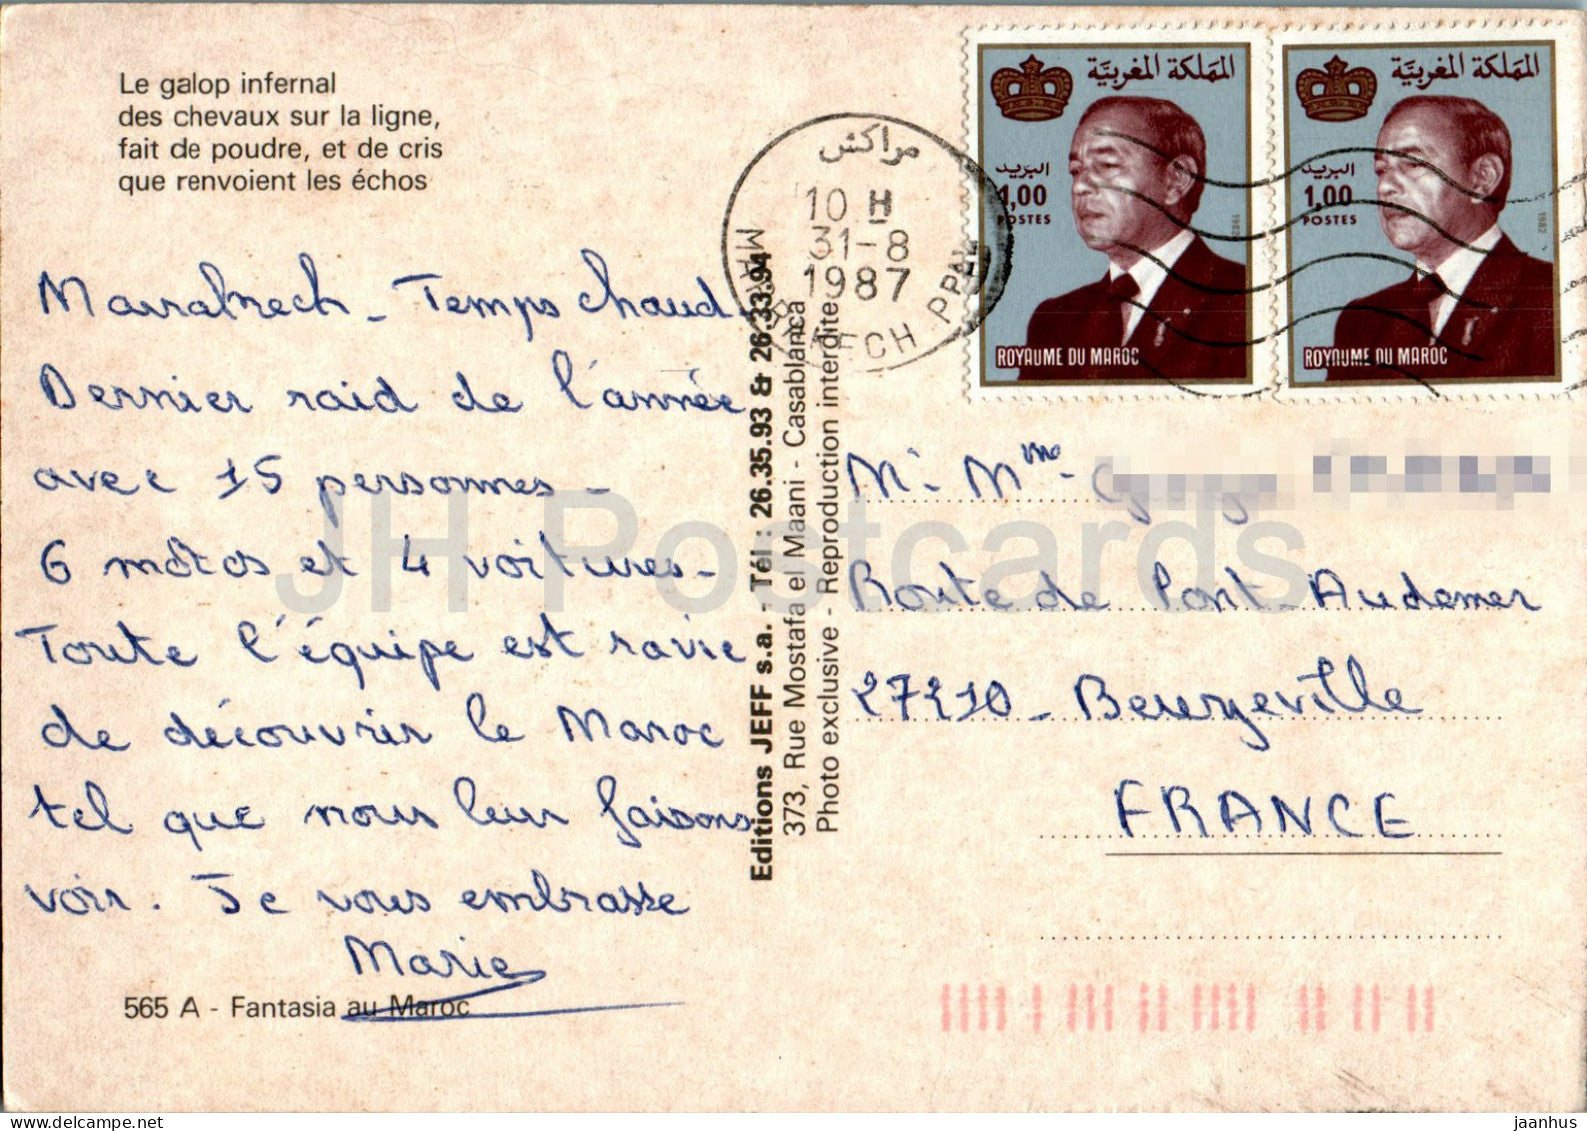 Le galop infernal
des chevaux sur la ligne,
fait de poudre, et de cris
que renvoient les échos
Marrakech - Temps chaud.
Dernier raid de l'année
avec 15 personnes -
6 motos et 4 voitures -
Toute l'équipe est ravie
de découvrir le Maroc
tel que nous leur faisons
voir. Je vous embrasse
Marie
565 A - Fantasia au Maroc
Editions JEFF s.a. - Tél : 26.35.93 & 26.33.94
373, Rue Mostafa el Maani - Casablanca
Photo exclusive - Reproduction interdite
مراكش
10 H
31-8
1987
MARRAKECH PPAL
المملكة المغربية
البريد
1,00
POSTES
1982
ROYAUME DU MAROC
المملكة المغربية
البريد
1,00
POSTES
1982
ROYAUME DU MAROC
Mr Mme
Route de Pont-Audemer
27210 - Beuzeville
FRANCE
JH Postcards
www.delcampe.net
jaanhus